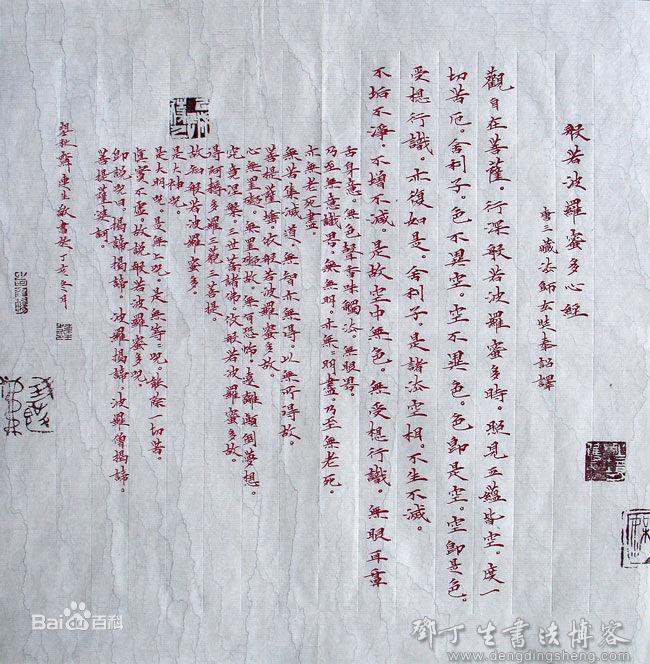 般若波羅蜜多心經
唐三藏法師玄奘奉詔譯
觀自在菩薩。行深般若波羅蜜多時。照見五蘊皆空。度一
切苦厄。舍利子。色不異空。空不異色。色即是空。空即是色。
受想行識。亦復如是。舍利子。是諸法空相。不生不滅。
不垢不淨。不增不減。是故空中無色。無受想行識。無眼耳鼻
舌身意。無色聲香味觸法。無眼界。
乃至無意識界。無無明。亦無無明盡。乃至無老死。
亦無老死盡。
無苦集滅道。無智亦無得。以無所得故。
菩提薩埵。依般若波羅蜜多故。
心無罣礙。無罣礙故。無有恐怖。遠離顛倒夢想。
究竟涅槃。三世諸佛。依般若波羅蜜多故。
得阿耨多羅三藐三菩提。
故知般若波羅蜜多。
是大神咒。
是大明咒。是無上咒。是無等等咒。能除一切苦。
真實不虛。故說般若波羅蜜多咒
即說咒曰。揭諦揭諦。波羅揭諦。波羅僧揭諦。
菩提薩婆訶。
生敬書於丁亥冬月
Bai百科
鄧丁生書法博客
www.dengdingsheng.com